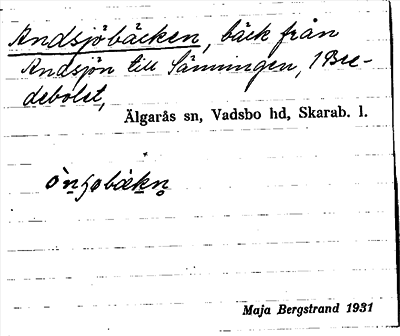 Andsjöbäcken, bäck från
Andsjön till Sänningen, 1 Bre-
debolet,
Älgarås sn, Vadsbo hd, Skarab. l.
Maja Bergstrand 1931